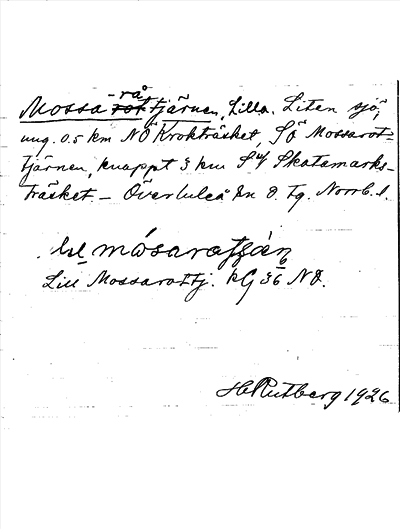 -rå
Mossa rot tjärnen, Lilla. Liten sjö,
ung. 0.5 km NÖ Krokträsket, SÖ Mossarot-
tjärnen, knappt 3 km S Skatamarks-
träsket. – Överluleå sn Ö. tg. Norrb. l.
Lill Mossarottj. KG 36 NÖ.
H Rutberg 1926